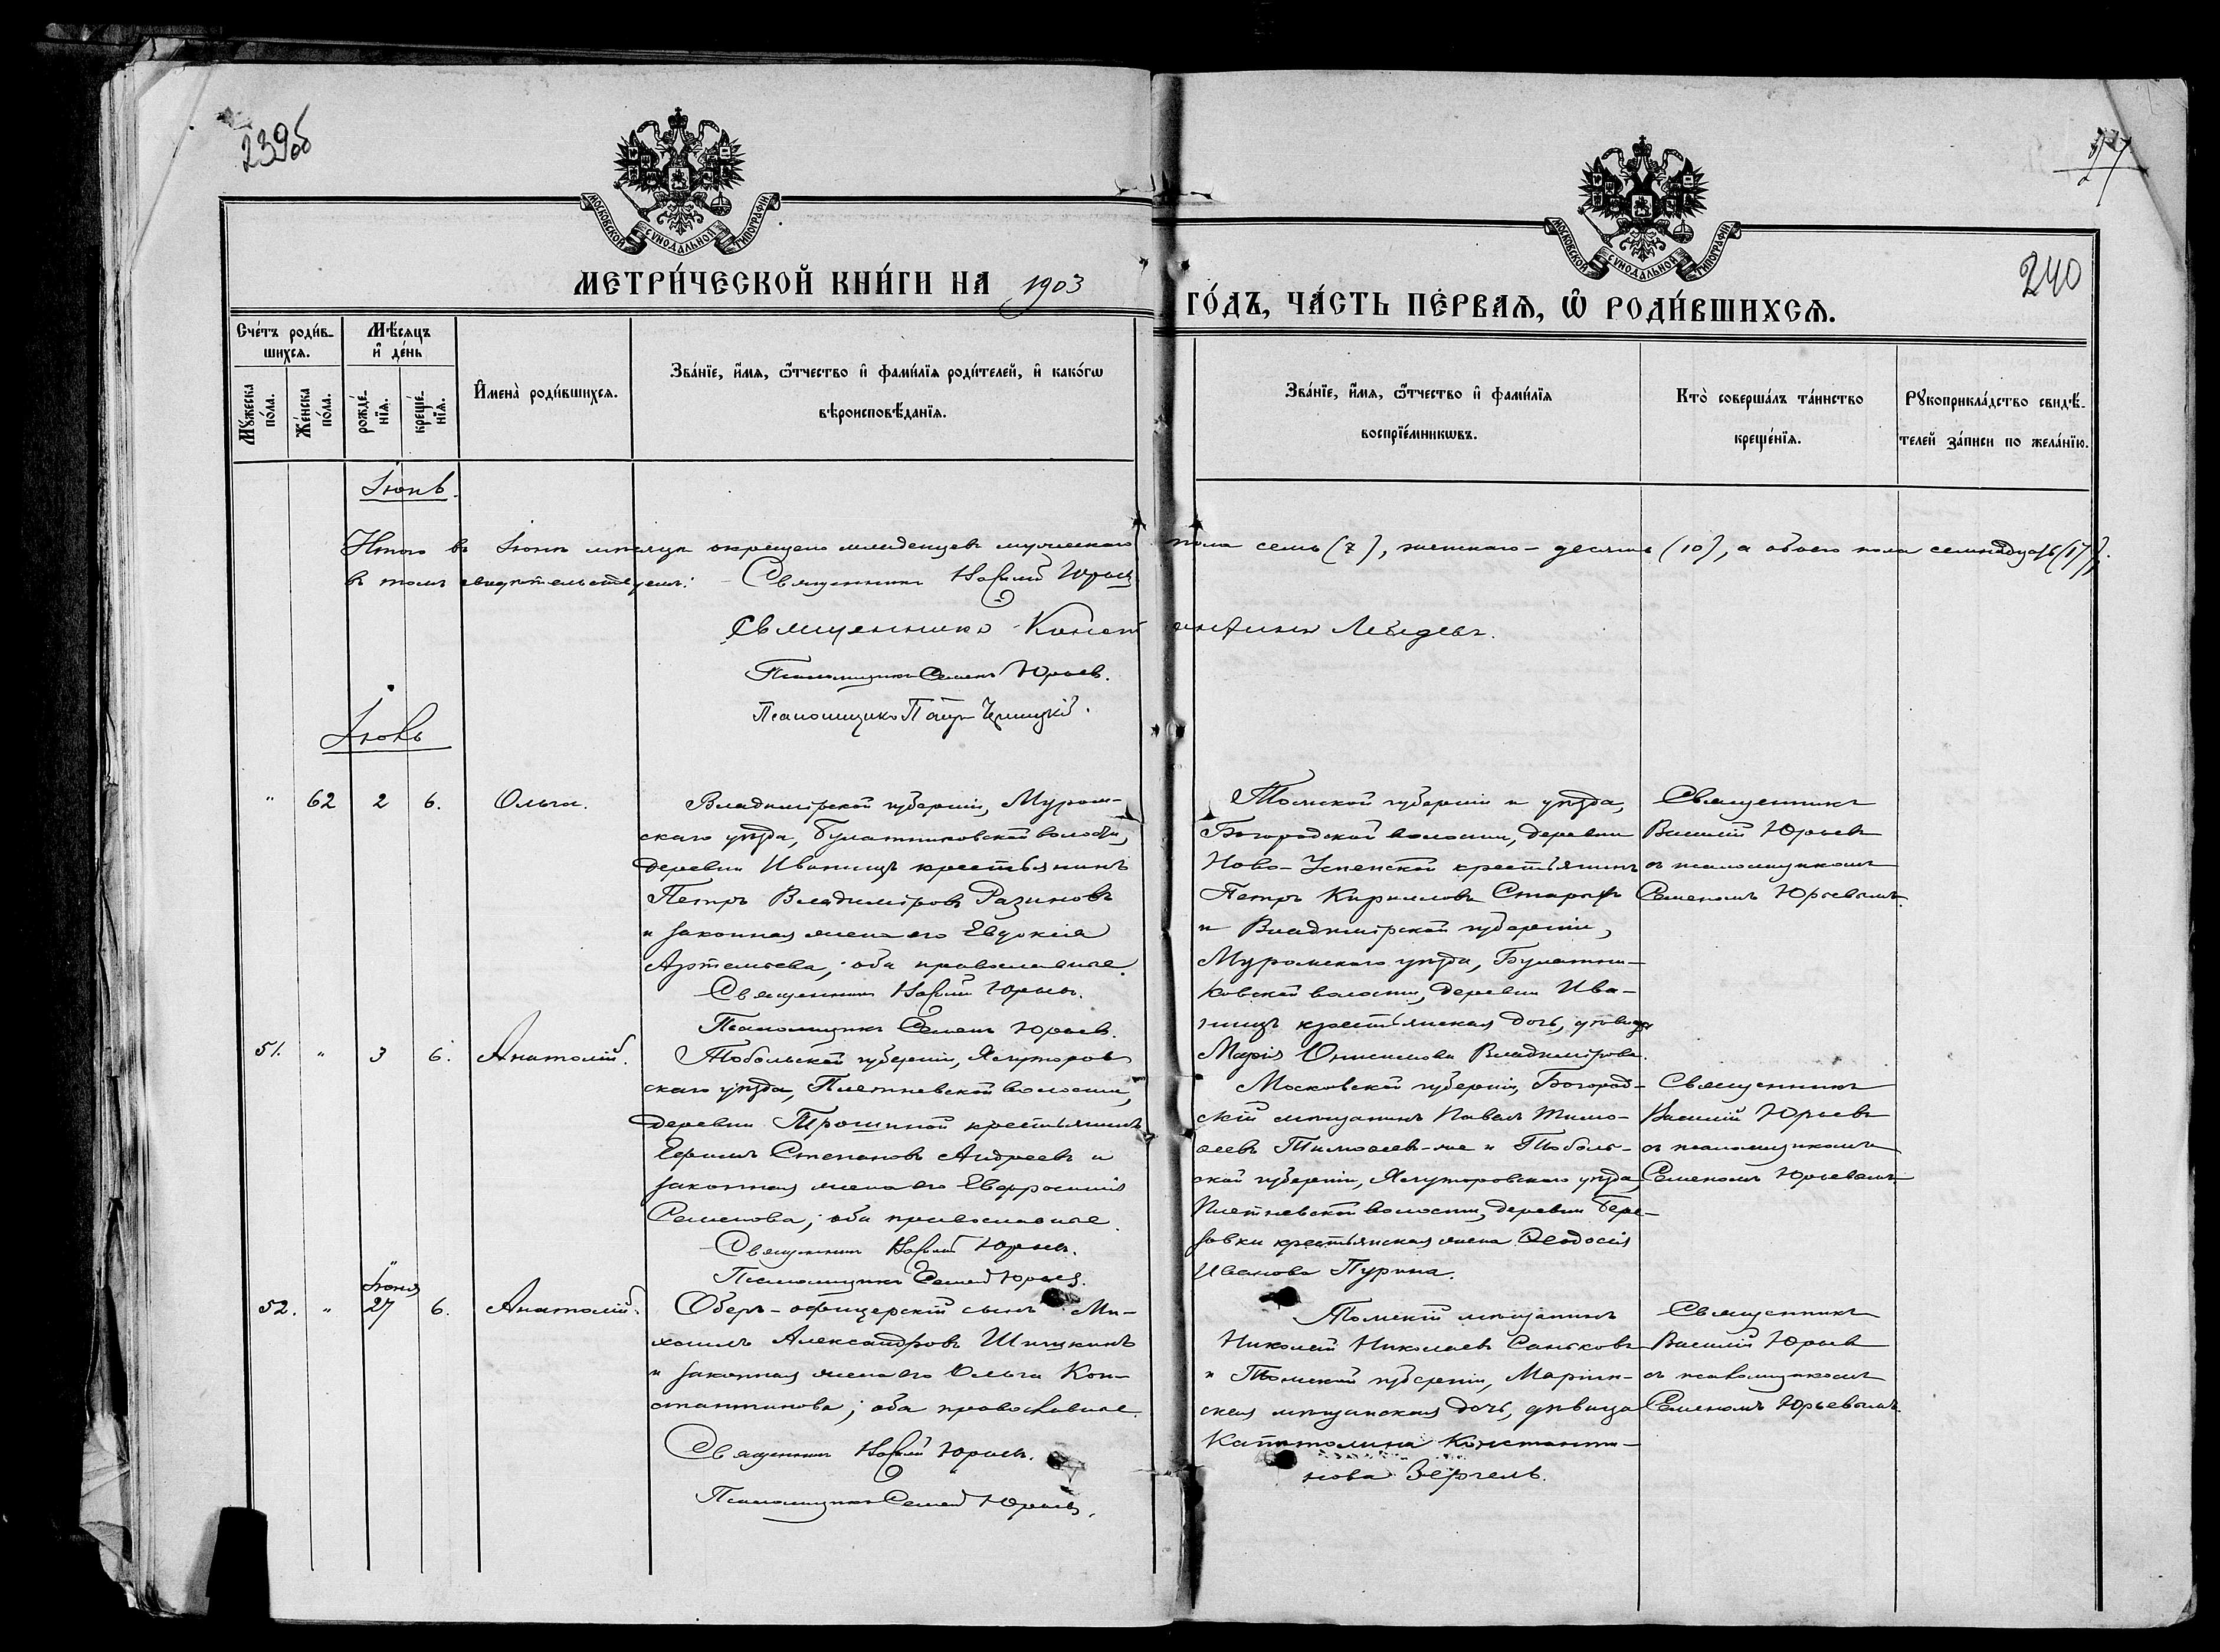 239об
240
МОСКОВСКОЙ СѴНОДАЛЬНОЙ ТИПОГРАФІИ
МОСКОВСКОЙ СѴНОДАЛЬНОЙ ТИПОГРАФІИ
МЕТРИ́ЧЕСКОЙ КНИ́ГИ НА 1903 ГО́ДЪ, ЧА́СТЬ ПЕ́РВАѦ, Ѡ҆ РОДИ́ВШИХСѦ.
Сче́тъ роди́в-
шихся.
Мꙋ́жеска по́ла.
Же́нска по́ла.
Мѣ́сяцъ и҆ де́нь
рожде́-нїѧ.
креще́-нїѧ.
И҆мена̀ роди́вшихсѧ.
Зва́нїе, и҆́мѧ, ѻ҆́тчество и҆ фами́лїѧ роди́телей, и҆ како́гѡ
вѣроисповѣ́данїѧ.
Зва́нїе, и҆́мѧ, ѻ҆́тчество и҆ фами́лїѧ
воспрїе́мникѡвъ.
Кто̀ соверша́лъ та́инство
креще́нїѧ.
Рꙋкоприкла́дство свидѣ́-
телей за́писи по жела́нїю.
Іюнь.
Итого въ Іюнѣ мѣсяцѣ окрещено младенцевъ мужескаго пола семь (7), женскаго – десять (10), а обоего пола семнадцать (17),
въ томъ свидѣтельствуемъ: – Священникъ Василій Юрьевъ
Священникъ Константинъ Лебедевъ.
Псаломщикъ Семенъ Юрьевъ.
Псаломщикъ
Іюль
" 62 2 6. Ольга.
Владимірской губерніи, Муром-
скаго уѣзда, Булатниковской волости,
деревни Иваницъ крестьянинъ
Петръ Владиміровъ Разиновъ
и законная жена его Евдокія
Артемьева; оба православные.
Священникъ Василій Юрьевъ.
Псаломщикъ Семенъ Юрьевъ.
Томской губерніи и уѣзда,
Богородской волости, деревни
Ново-Успенской крестьянинъ
Петръ Кирилловъ
и Владимірской губерніи,
Муромскаго уѣзда, Булатни-
ковской волости, деревни Ива-
ницъ крестьянская дочь, дѣвица
Марія Онисимова Владимірова.
Священникъ
Василій Юрьевъ
съ псаломщикомъ
Семеномъ Юрьевымъ.
51. " 3 6. Анатолій.
Тобольской губерніи, Ялуторов
скаго уѣзда, Плетневской волости,
деревни Трошиной крестьянинъ
Ефимъ Степановъ Андреевъ и
законная жена его Евфросинія
Семенова; оба православные.
Священникъ Василій Юрьевъ.
Псаломщикъ Семенъ Юрьевъ.
Московской губерніи, Богород-
скій мѣщанинъ Павелъ Тимо-
ѳеевъ Тимоѳеевъ-же и Тоболь-
ской губерніи, Ялуторовскаго уѣзда,
Плетневской волости, деревни Бере-
зовки крестьянская жена Ѳеодосія
Иванова Пурина.
Священникъ
Василій Юрьевъ
съ псаломщикомъ
Семеномъ Юрьевымъ.
52. " Іюня 27 6. Анатолій.
Оберъ-офицерскій сынъ Ми-
хаилъ Александровъ Шишкинъ
и законная жена его Ольга Кон-
стантинова; оба православные.
Священникъ Василій Юрьевъ.
Псаломщикъ Семенъ Юрьевъ.
Томскій мѣщанинъ
Николай Николаевъ Саньковъ
и Томской губерніи, Маріин-
ская мѣщанская дочь, дѣвица
Капитолина Константи-
нова Зергель.
Священникъ
Василій Юрьевъ
съ псаломщикомъ
Семеномъ Юрьевымъ.